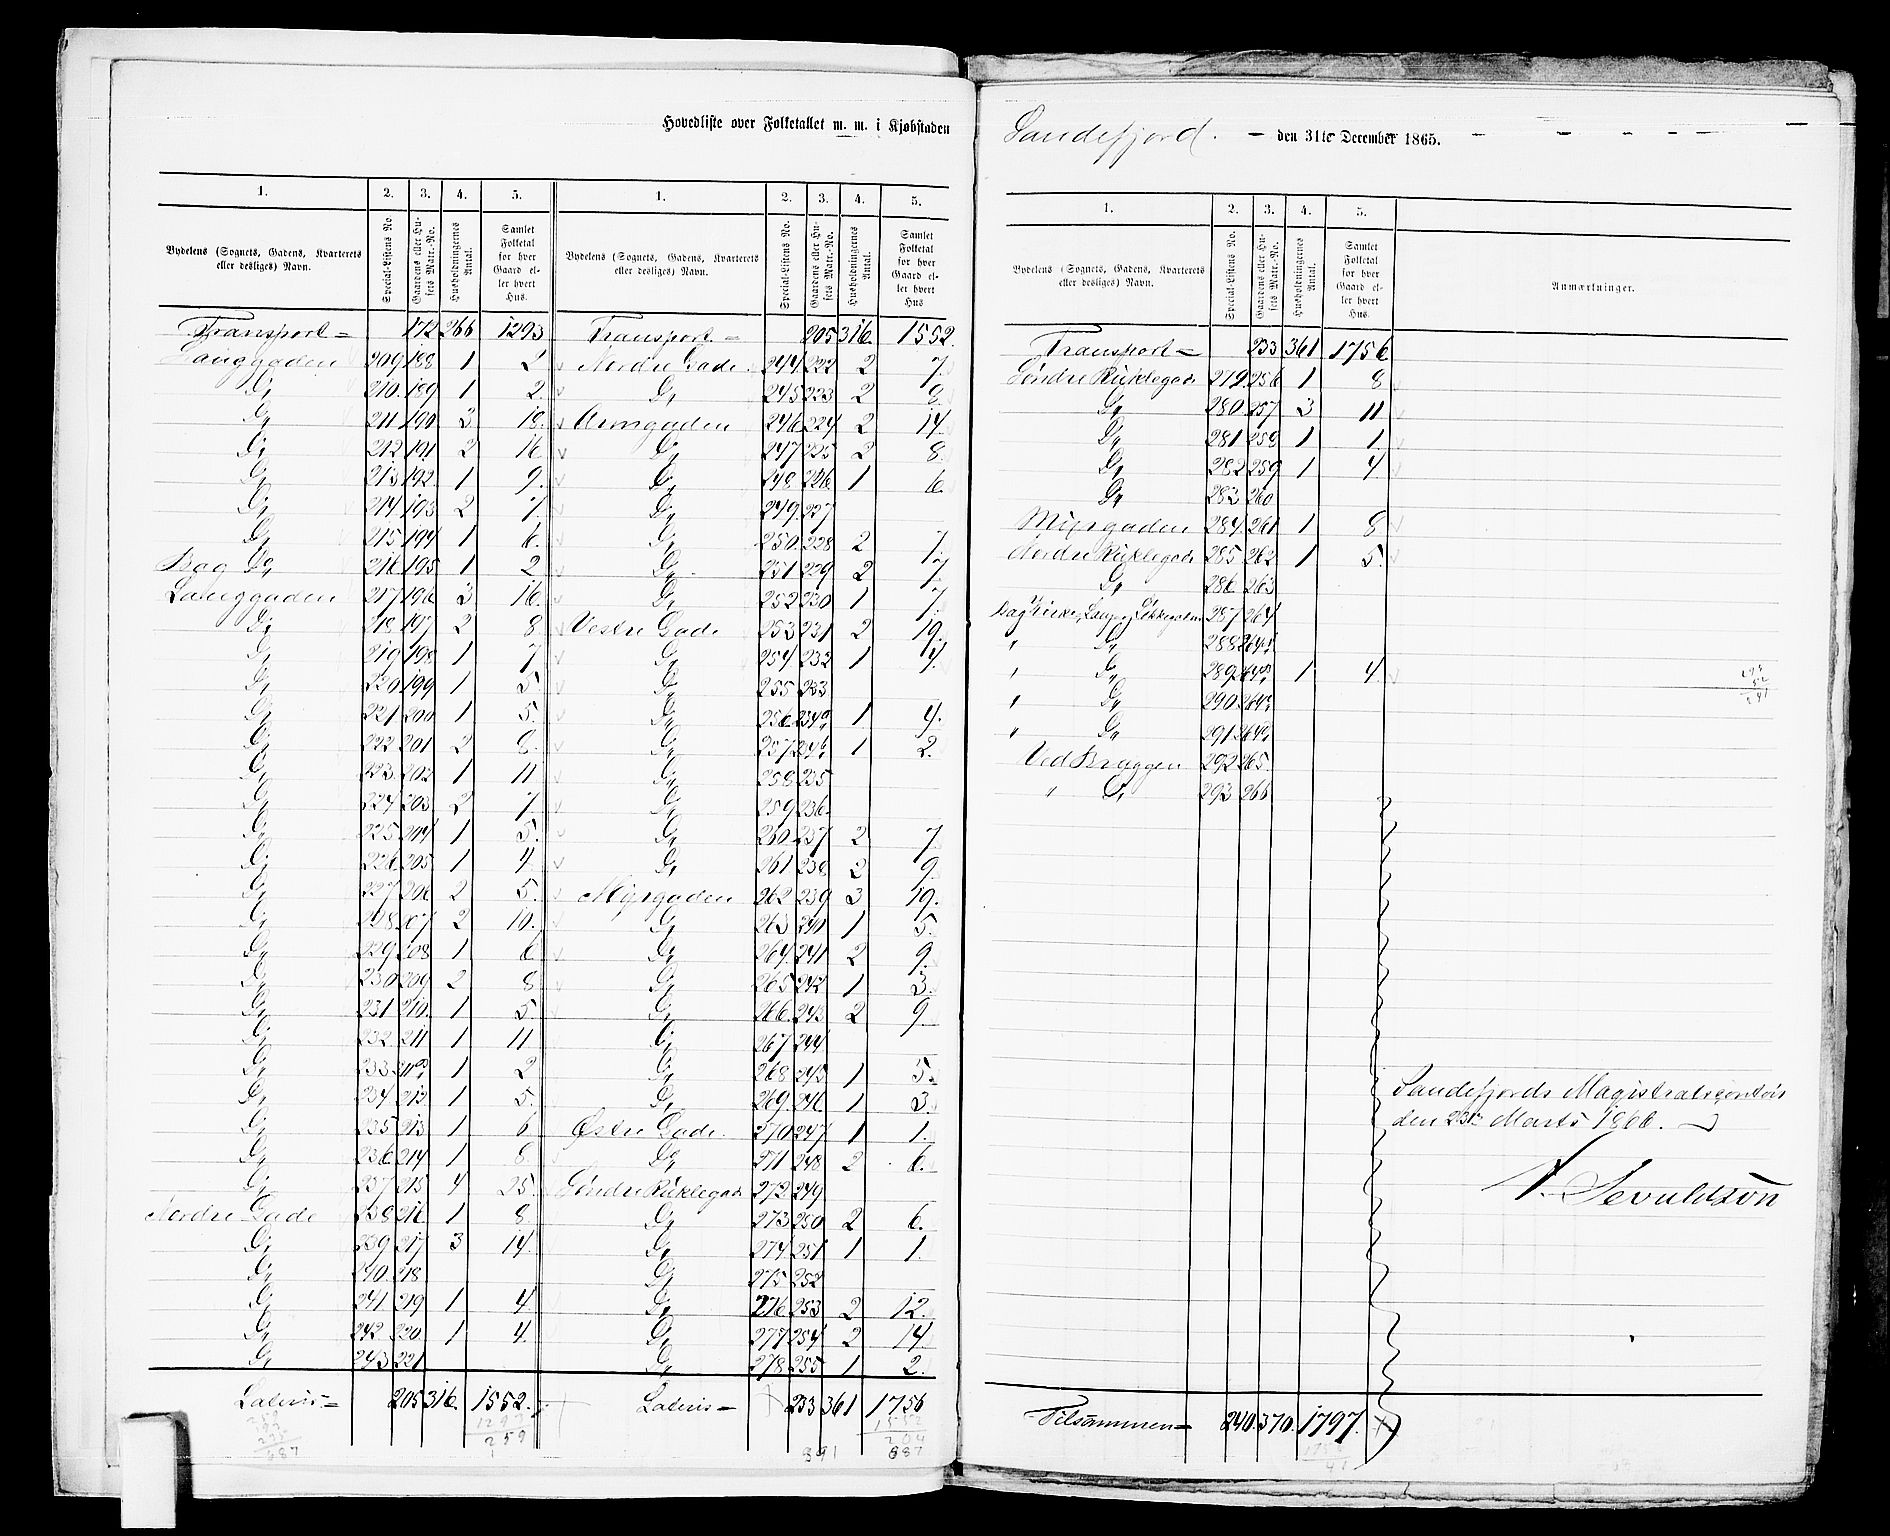 Hovedliste over Folketallet m. m. i Kjøbstaden Sandefjord. - den 31te December 1865.
1. 2. 3. 4. 5. 1. 2. 3. 4. 5.
Bydelens (Sognets, Gadens, Kvarterets eller desliges) Navn. Special-Listens No. Gaardens eller Husets Matr.-No. Husholdningernes Antal. Samlet Folketal for hver Gaard eller hvert Hus. Bydelens (Sognets, Gadens, Kvarterets eller desliges) Navn. Special-Listens No. Gaardens eller Husets Matr.-No. Husholdningernes Antal. Samlet Folketal for hver Gaard eller hvert Hus
Transport = 172 266 1293 Transport = 205 316. 1552.
Langgaden 209 188 1 2 Nordre Gade. 244 222 2 7.
Do 210. 189 1 2. Do 245 223 2 8.
Do 211 190 3 18. 246 224 2 14.
Do 212 191 2 16 Do 247 225 2 8.
Do 213 192. 1 9. Do 248 226 1 6.
Do 214 193 2 7 Do 249. 227
Do 215 194 1 6. Do 250. 228 2 7.
Bag Do 216 195 1 2 Do 251 229 2 7.
Langgaden 217 196 3 16. Do 252 230 1 7.
Do 218 197 2 8 Vestre Gade 253 231 2 19.
Do 219 198 1 7 Do 254 232 1 4.
Do 220 199 1 5. Do 255 233
Do 221 200 1 5. Do 256. 234a 1 4.
Do 222 201 2 8. Do 257 234b 1 2.
Do 223. 202 1 11 Do 258 235
Do 224 203 2 7. Do 259 236.
Do 225 204 1 5. Do 260. 237 2 7.
Do 226. 205 1 4. Do 261. 238 2 9.
Do 227 206 2 5. Myrgaden 262 239 3 19.
Do 228. 207 2 10. Do 263 240 1 5.
Do 229 208 1 6 Do 264. 241 2 9.
Do 230 209 2 8 Do 265 242 1 3.
Do 231 210. 1 5 Do 266. 243 2 9
Do 232. 211 1 11 Do 267 244
Do 233. 1 2 Do 268 245 1 5.
Do 234 212. 1 5. Do 269. 246 1 3.
Do 235 213 1 6 Østre Gade. 270 247 1 1.
Do 236. 214 1 8. Do 271 248 2 6.
Do 237 215 4 25. Søndre Rücklegade 272 249
Nordre Gade 238 216. 1 8 Do 273 250 2 6.
Do 239 217 3 14. Do 274. 251 1 1.
Do 240. 218 Do 275 252
Do 241 219 1 4 Do 276 253 2 12.
Do 242 220. 1 4. Do 277 254 2 14
Do 243 221 Do 278 255 1 2.
Lateris = 205 316. 1552. Lateris = 233 361 1756
1. 2. 3. 4. 5.
Bydelens (Sognets, Gadens, Kvarterets eller desliges) Navn. Special-Listens No. Gaardens eller Husets Matr.-No. Husholdningernes Antal. Samlet Folketal for hver Gaard eller hvert Hus. Anmærkninger.
Transport = 233 361 1756
Søndre Rücklegade 279. 256 1 8
Do 280. 257 3 11
Do 281 258 1 1.
Do 282 259 1 4.
Do 283 260
Myrgaden 284. 261 1 8
Nordre Rücklegade 285 262 1 5.
Do 286. 263
287 264
" Do 288
" Do 289 1 4
" Do 290
" Do 291
Ved Bryggen 292 265.
" Do 293 266
Tilsammen = 240. 370. 1797.
Sandefjords Magistratscontoir
den 23de Marts 1866.